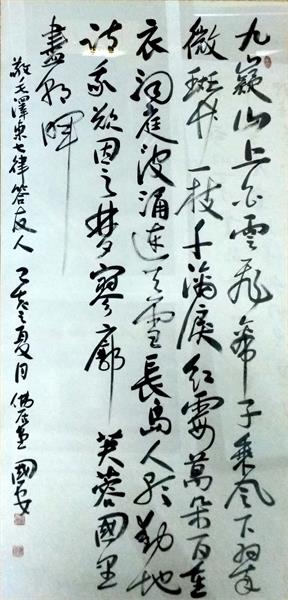 九嶷山上白雲飛帝子乘風下翠
微斑竹一枝千滴淚紅霞萬朵百重
衣洞庭波涌連天雪長島人歌動地
詩我欲因之夢寥廓芙蓉國里
盡朝暉
毛澤東七律答友人 亥之夏月 國安